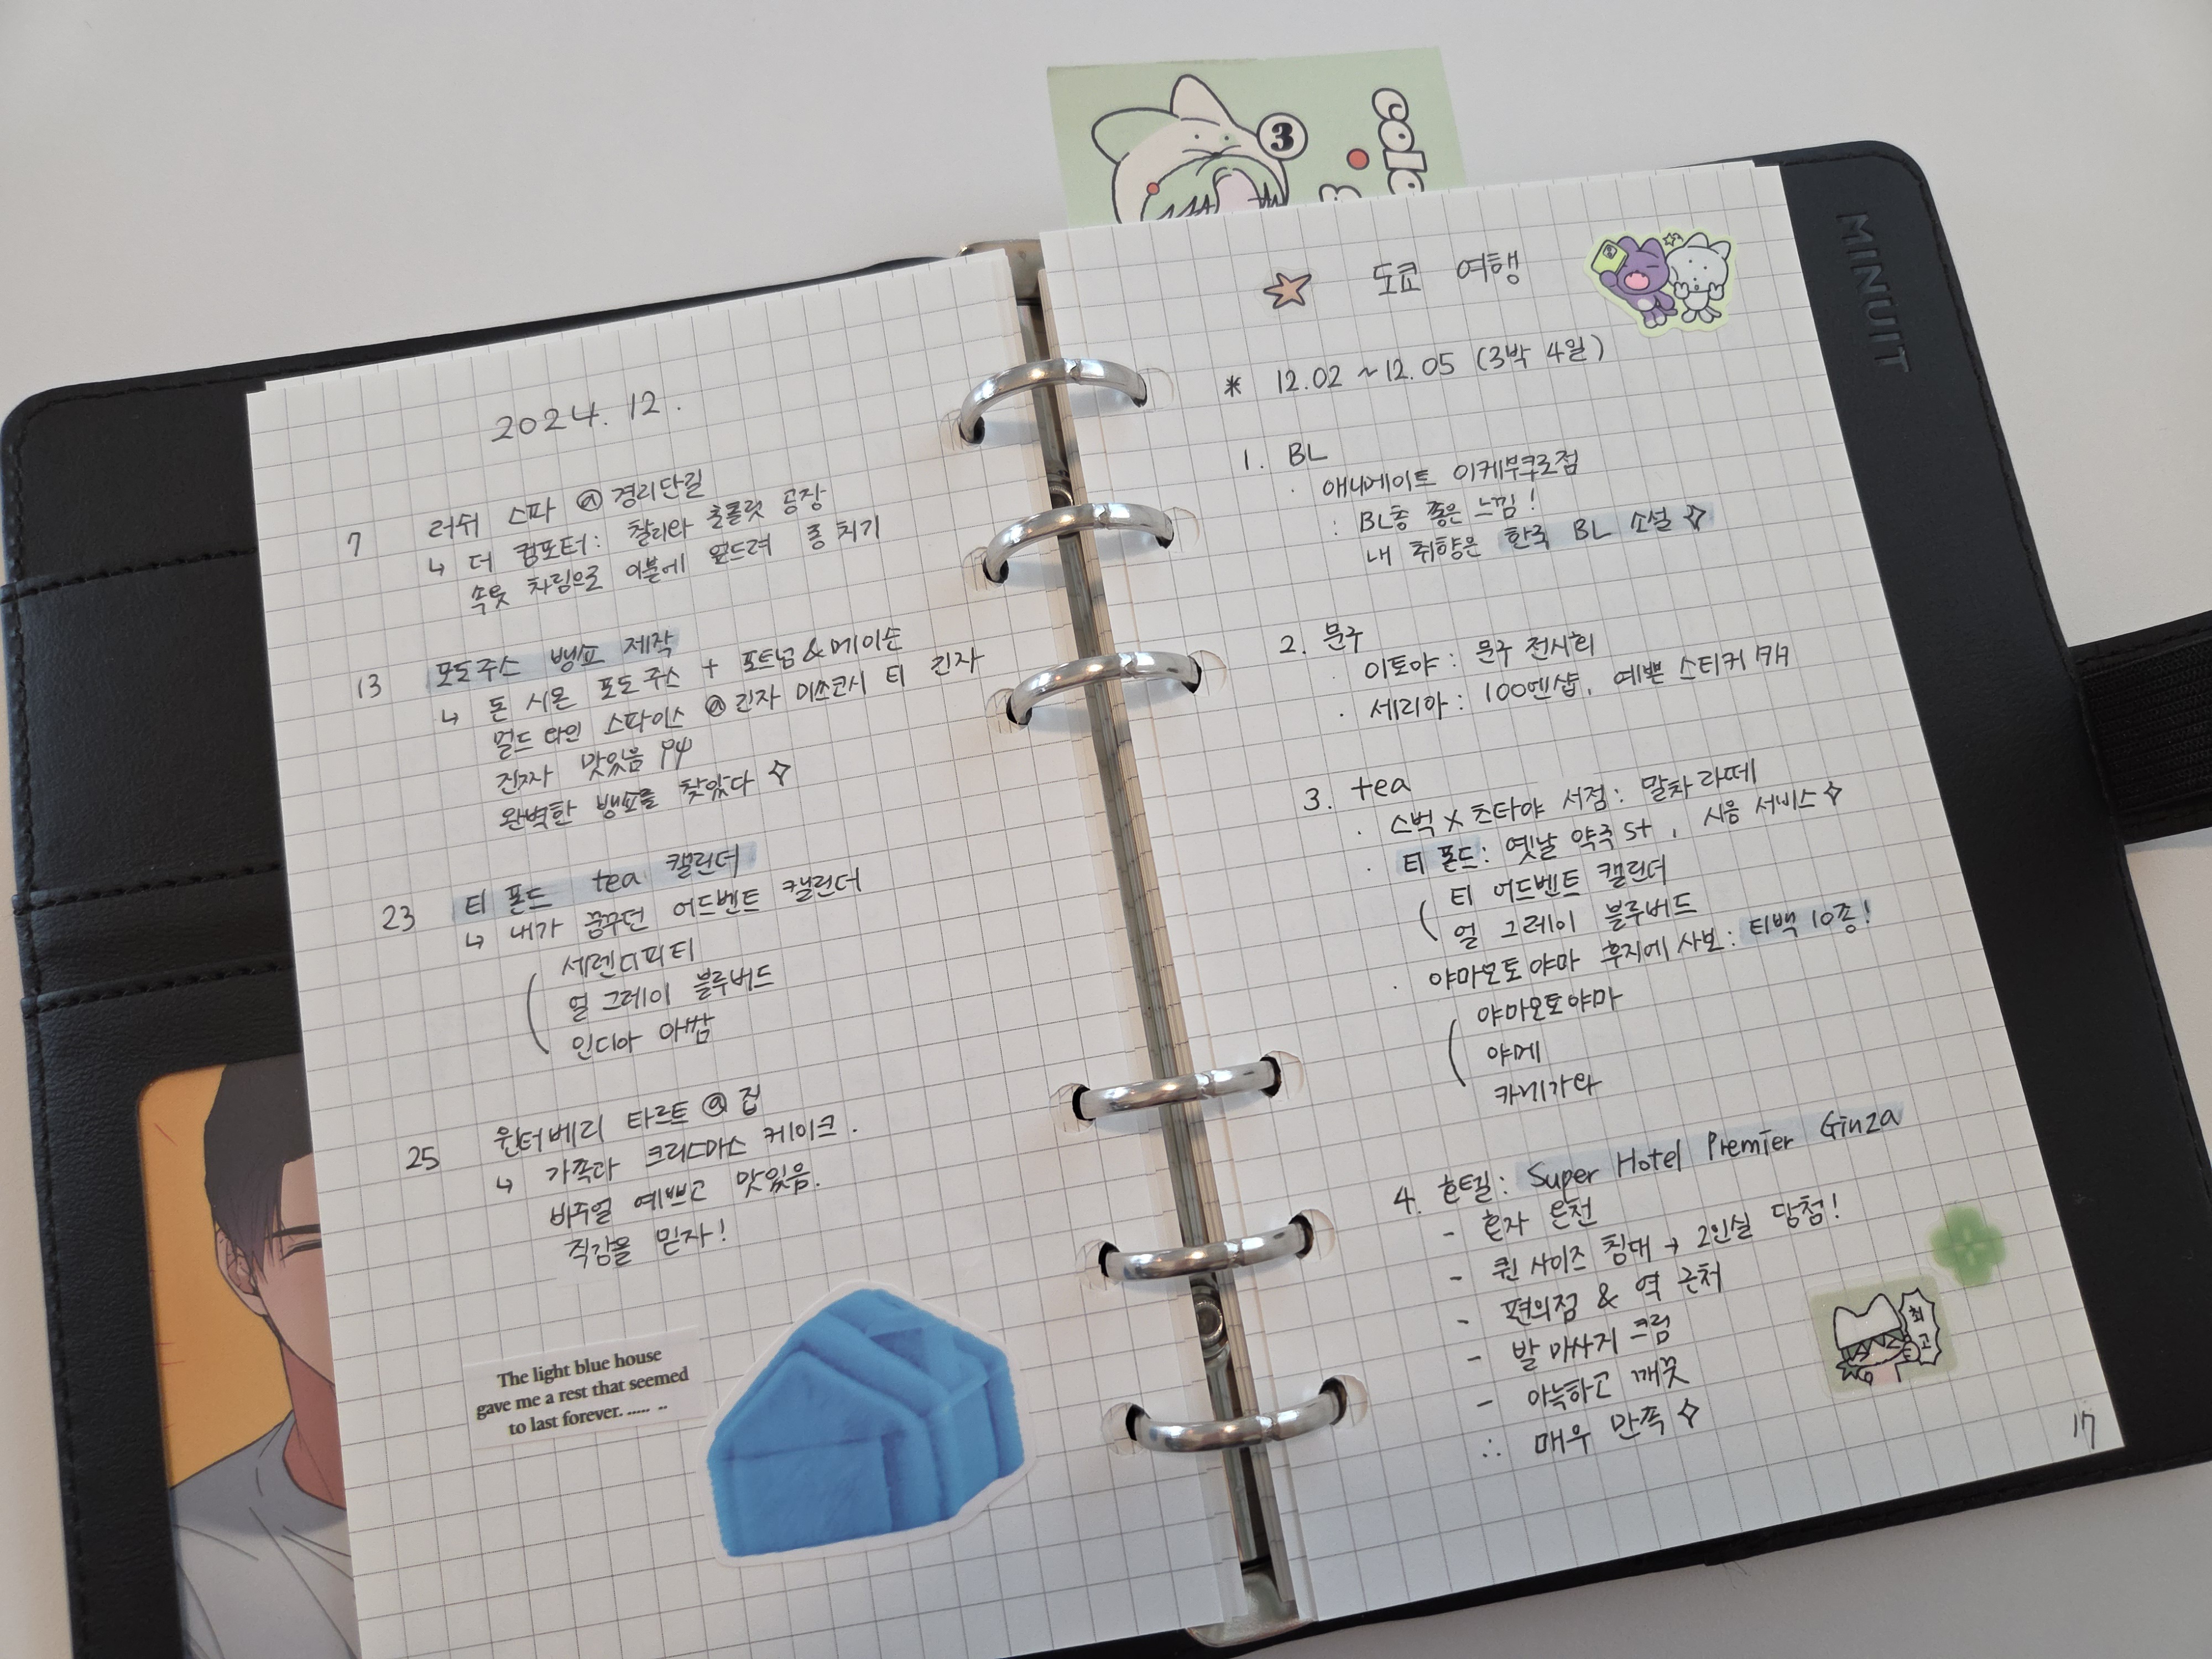 2024. 12.
7 러쉬 스파 @ 경리단길
↳ 더 컴포터: 찰리와 초콜릿 공장
속옷 차림으로 이불에 엎드려 종 치기
13 포도주스 뱅쇼 제작
↳ 돈 시몬 포도주스 + 포트넘&메이슨
멀드 와인 스파이스 @ 긴자 미쓰코시 티 긴자
진짜 맛있음
완벽한 뱅쇼를 찾았다 ✧
23 티 폰드 tea 캘린더
↳ 내가 꿈꾸던 어드벤트 캘린더
세렌디피티
얼 그레이 블루버드
인디아 아쌈
25 윈터베리 타르트 @ 집
↳ 가족과 크리스마스 케이크.
비주얼 예쁘고 맛있음.
직감을 믿자!
The light blue house
gave me a rest that seemed
to last forever. ..... ..
3
도쿄 여행
* 12.02 ~ 12.05 (3박 4일)
1. BL
· 애니메이트 이케부쿠로점
: BL층 좋은 느낌!
내 취향은 한국 BL 소설 ✧
2. 문구
· 이토야: 문구 전시회
· 세리아: 100엔샵, 예쁜 스티커
3. tea
· 스벅 X 츠타야 서점: 말차 라떼
· 티 폰드: 옛날 약국 st, 시음 서비스 ✧
( 티 어드벤트 캘린더
얼 그레이 블루버드
· 야마모토야마 후지에사보: 티백 10종!
( 야마모토야마
야메
카네가라
4. 호텔: Super Hotel Premier Ginza
- 혼자 온천
- 퀸 사이즈 침대 → 2인실 당첨!
- 편의점 & 역 근처
- 발 마사지 크림
- 아늑하고 깨끗
∴ 매우 만족 ✧
최고
17
MINUIT